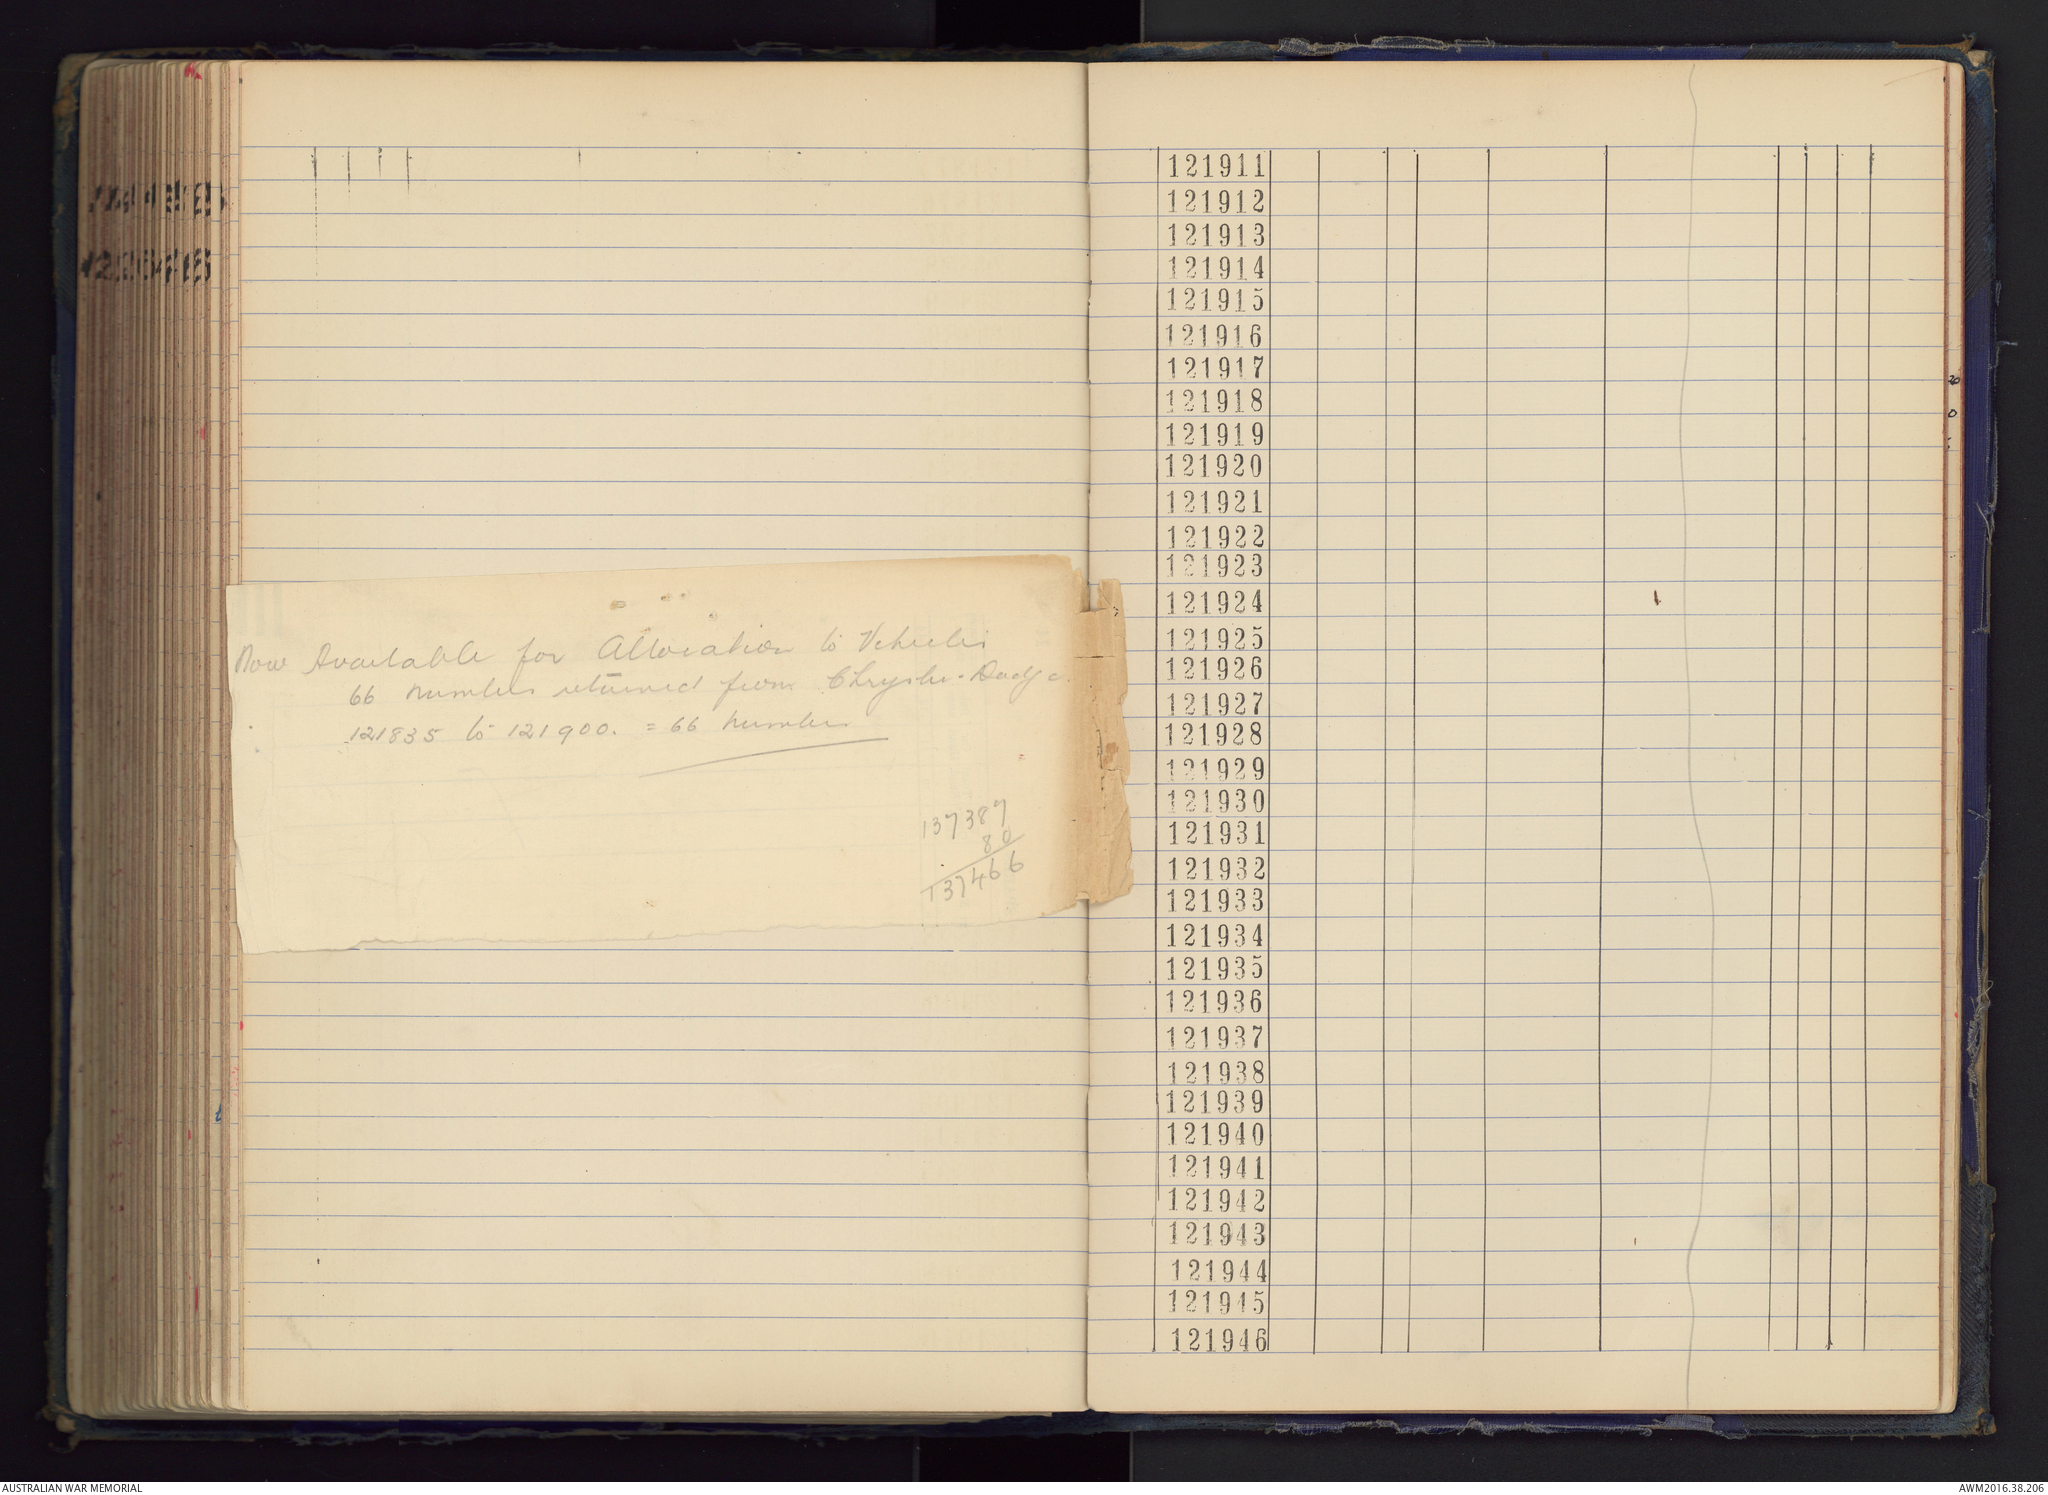 Now Available for Allocation to Vehicles
66 numbers returned from Chrysler-Dodge.
121835 to 121900. = 66 numbers
137387
80
137466
121911
121912
121913
121914
121915
121916
121917
121918
121919
121920
121921
121922
121923
121924
121925
121926
121927
121928
121929
121930
121931
121932
121933
121934
121935
121936
121937
121938
121939
121940
121941
121942
121943
121944
121945
121946
20
0
AUSTRALIAN WAR MEMORIAL
AWM2016.38.206